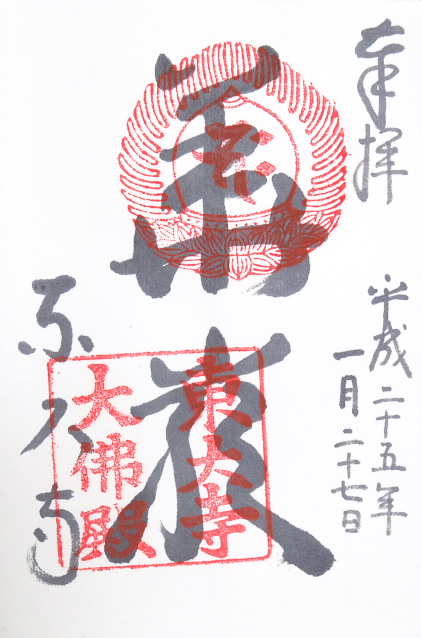 奉拝
平成二十五年
一月二十七日
華厳
東大寺
東大寺
大佛殿